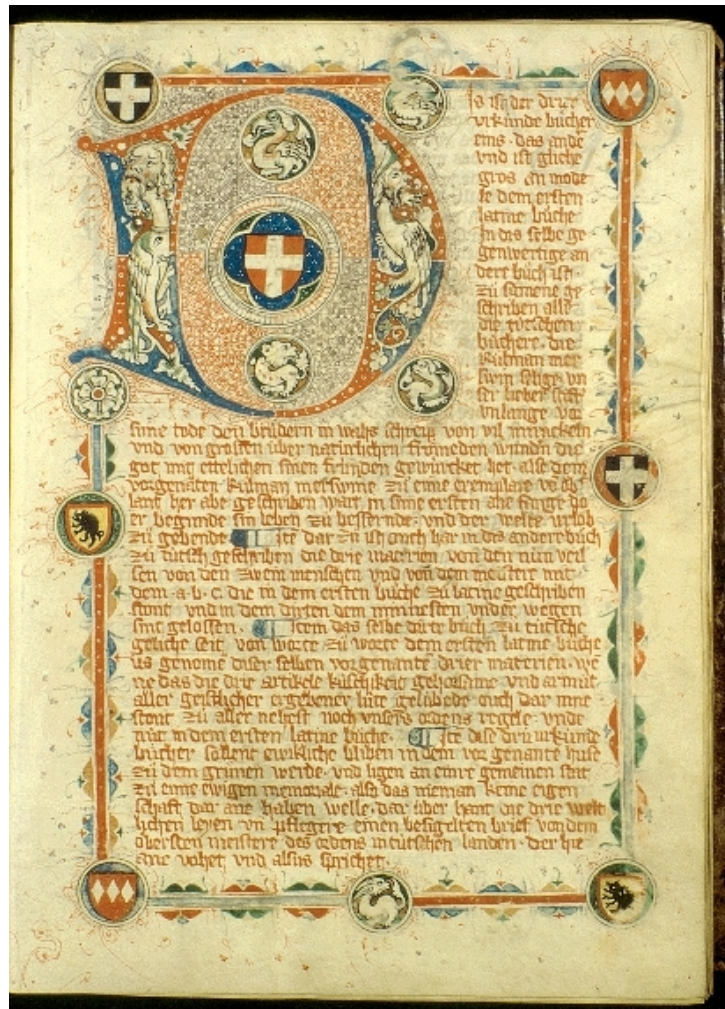 Is ist der drier
vrkunde bůcher
eins · das ander
vnd ist gliche
gros an mode
le dem ersten
latine bůche
In dis selbe ge
genwertige an
dere bůch ist
zů samene ge
schriben alle
die tútschen
bůchere · die
Růlman mer
swin selige vn
ser lieber stift
vnlange vor
sime tode den brůdern in wahs schreip von vil wunckeln
vnd von grossen úber natúrlichen frömeden wundn die
got mit ettelichen sinen frúnden gewúrcket het · alse dem
vorgenanten Růlman merswine zů eime exemplare
lant her abe geschriben wart in sime ersten ane fange do
er begunde sin leben zů bessernde · vnd der welte urlob
zů gebende ste dar zů ist ouch har in dis andere bůch
zů tútsch geschriben die drie materien von den nún vel
sen von den zwein menschen vnd von dem meistere mit
dem · a · b · c · die in dem ersten bůche zů latine geschriben
stont vnd in dem dirten dem minnesten vnder wegen
sint gelossen · Item das selbe dirte bůch zů tútsche
geliche seit von worte zů worte dem ersten latine bůche
us genomen diser selben vorgenante drier materien · we
ne das die drie artikele kúschikeit gehorsame vnd armůt
aller geistlicher ergebener lúte gelúbede ouch dar inne
stont zů aller nehest noch vnsers ordens regele · vnde
nút in dem ersten latine bůche · ste dise drú urkúnde
bůcher sollent ewikliche bliben in dem vor genante huse
zů dem grůnen werde · vnd ligen an eime gemeinen stat
zů eime ewigen memoriale · also das nieman keine eigen
schaft dar ane haben welle · dar úber hant die drie welt
lichen leyen vn pflegere einen besigelten brief von dem
obersten meistere des ordens in tútschen landen · der hie
ane vohet vnd alsus sprichet ·